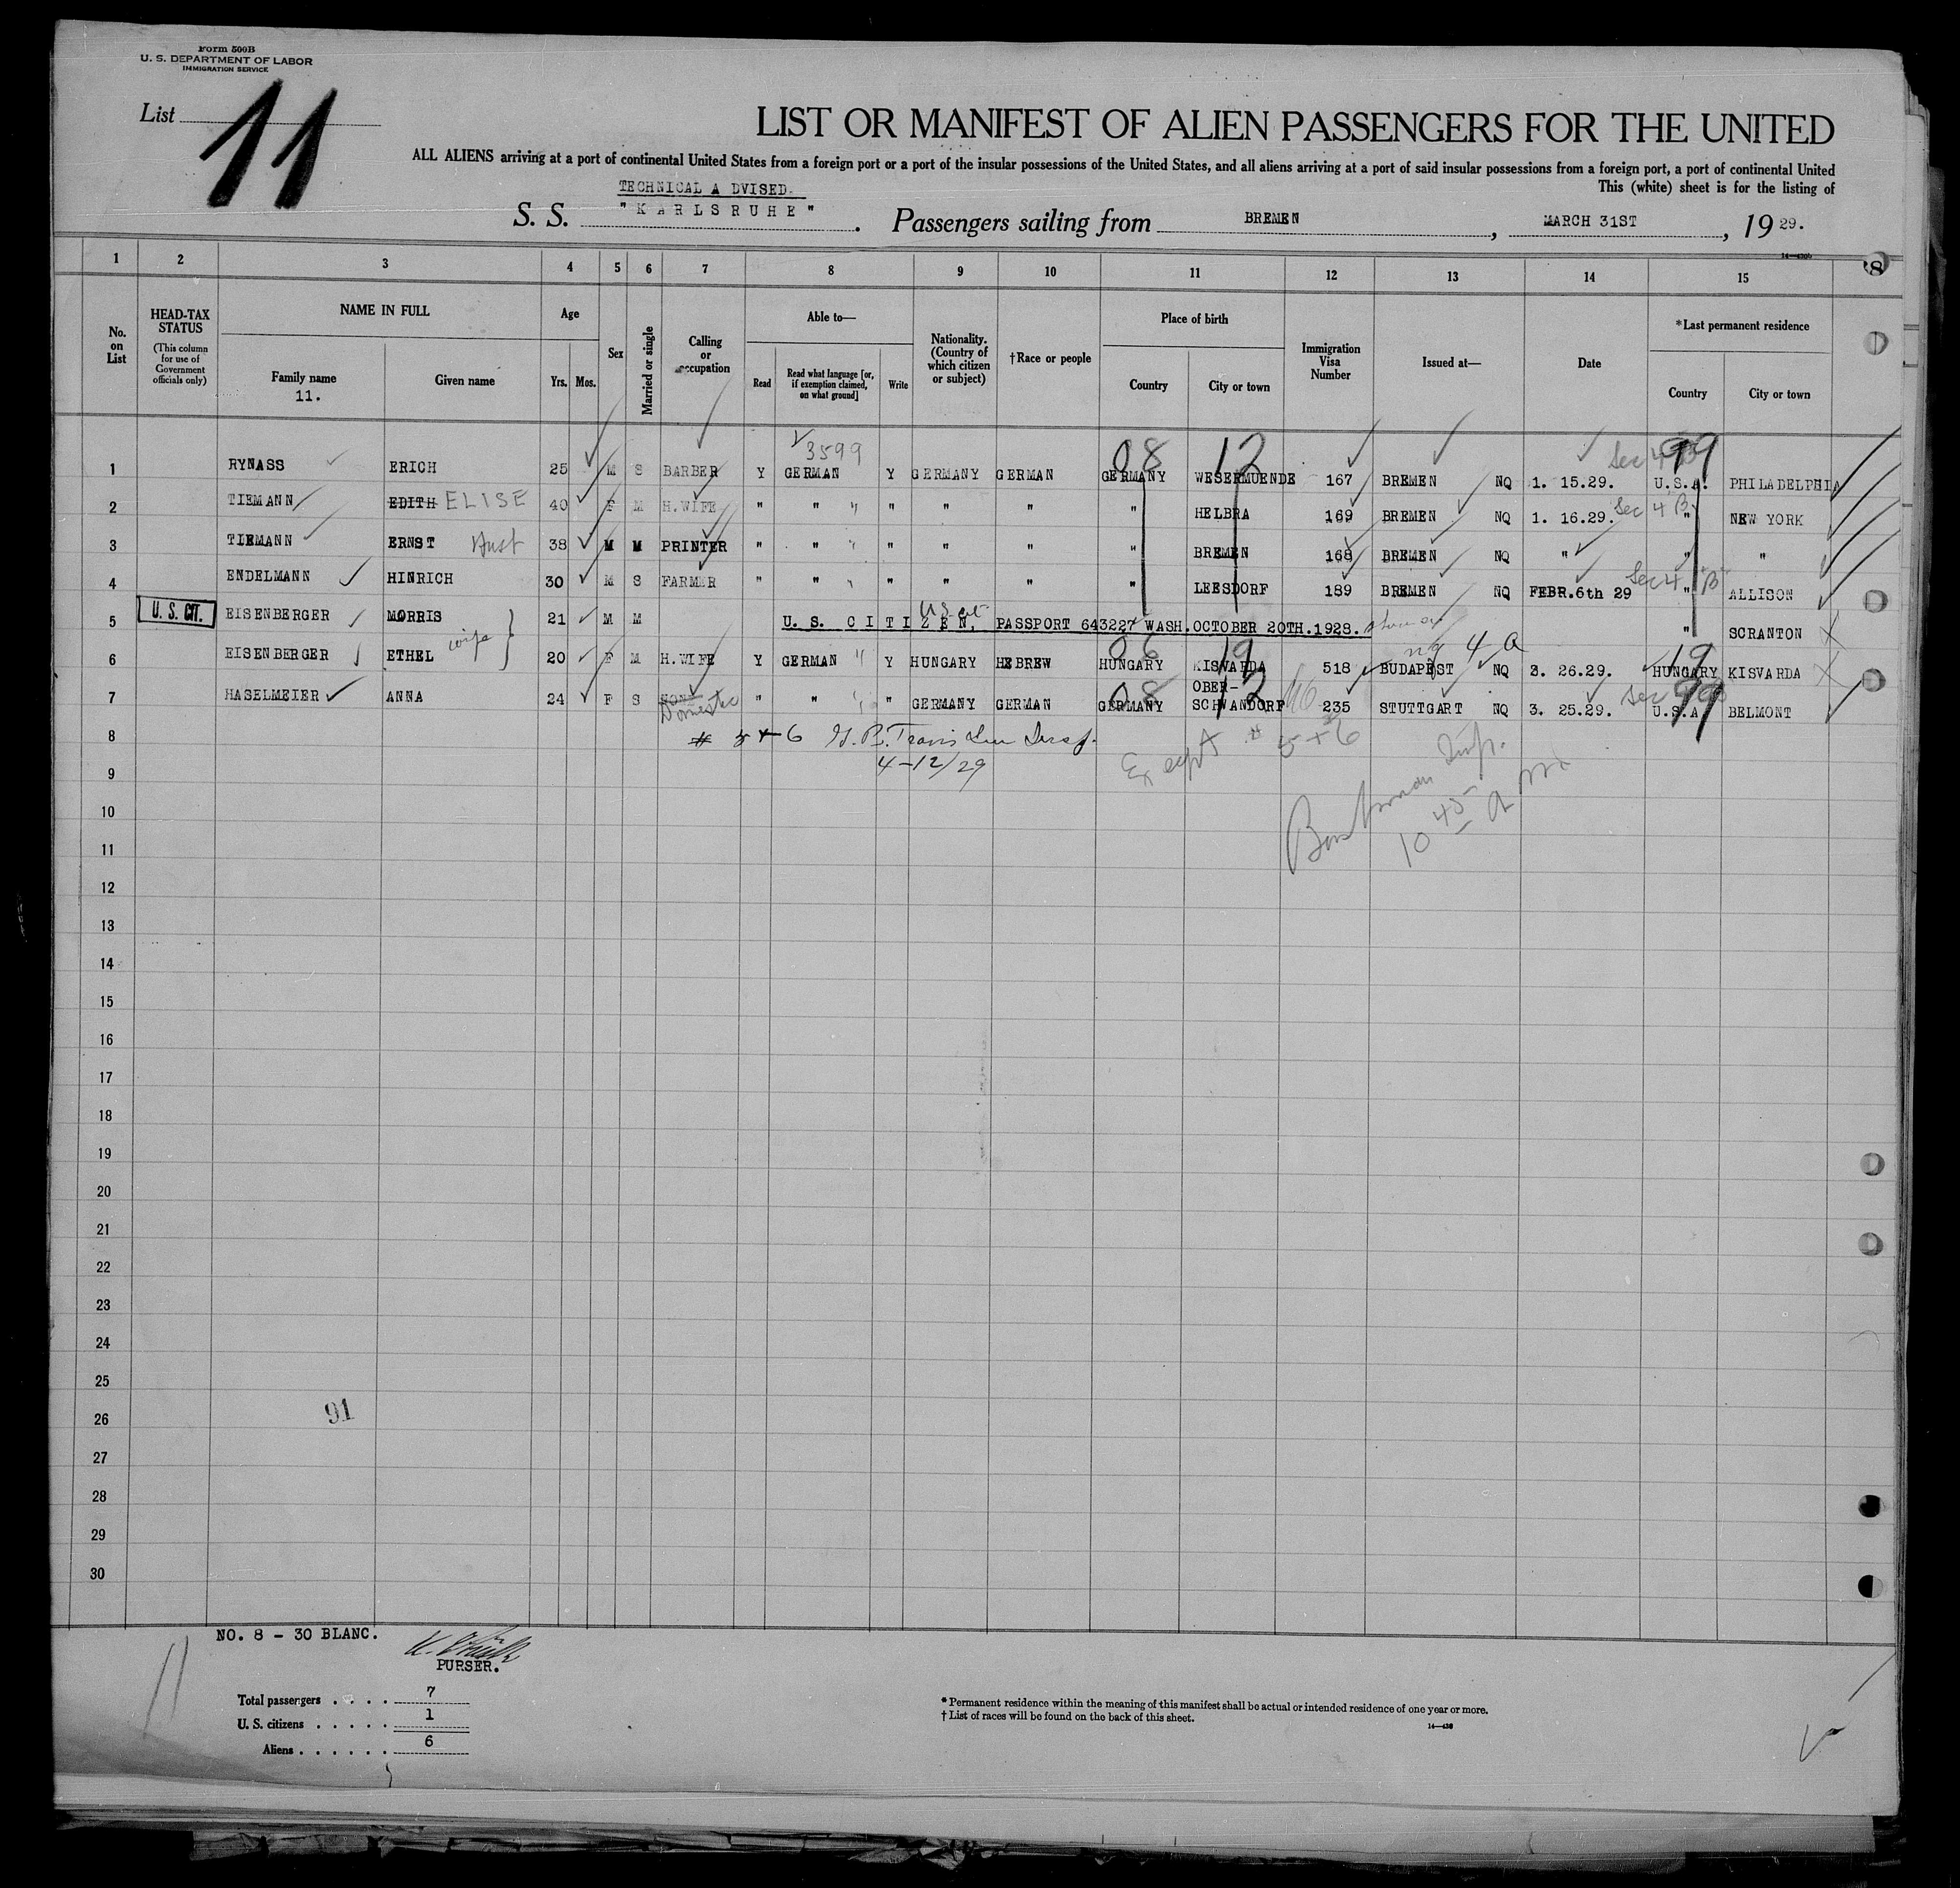 Form 500B
U. S. DEPARTMENT OF LABOR
IMMIGRATION SERVICE
List 11
LIST OR MANIFEST OF ALIEN PASSENGERS FOR THE UNITED
ALL ALIENS arriving at a port of continental United States from a foreign port or a port of the insular possessions of the United States, and all aliens arriving at a port of said insular possessions from a foreign port, a port of continental United
This (white) sheet is for the listing of
TECHNICAL A DVISED.
S. S. "KARLSRUHE". Passengers sailing from BREMEN, MARCH 31ST, 19 29.
1 2 3 4 5 6 7 8 9 10 11 12 13 14 15
No. on List
HEAD-TAX STATUS
(This column for use of Government officials only)
NAME IN FULL
Family name
11.
Given name
Age
Yrs. Mos.
Sex
Married or single
Calling or occupation
Able to—
Read
Read what language [or, if exemption claimed, on what ground]
Write
Nationality. (Country of which citizen or subject)
†Race or people
Place of birth
Country
City or town
Immigration Visa Number
Issued at—
Date
*Last permanent residence
Country
City or town
3599 08 12 Sec 4 B 99
1 RYNASS ERICH 25 M S BARBER Y GERMAN Y GERMANY GERMAN GERMANY WESERMUENDE 167 BREMEN NQ 1. 15.29. U.S.A. PHILADELPHIA
2 TIEMANN EDITH ELISE 40 F M H.WIFE " " " " " " HELBRA 169 BREMEN NQ 1. 16.29. Sec 4 B " NEW YORK
3 TIEMANN ERNST Hust 38 M M PRINTER " " " " " " BREMEN 168 BREMEN NQ " " "
4 ENDELMANN HINRICH 30 M S FARMER " " " " " " LEESDORF 189 BREMEN NQ FEBR.6th 29 Sec 4 "B" " ALLISON
5 U. S. CIT. EISENBERGER MORRIS 21 M M U. S. CITIZEN, PASSPORT 643227 WASH.OCTOBER 20TH.1928. " SCRANTON
US cit
06 19 nq 4 a 19
6 EISENBERGER ETHEL wife 20 F M H.WIFE Y GERMAN " Y HUNGARY HEBREW HUNGARY KISVARDA 518 BUDAPEST NQ 3. 26.29. HUNGARY KISVARDA
08 12 Sec 99
7 HASELMEIER ANNA 24 F S NONE Domestic " " " GERMANY GERMAN GERMANY OBER-SCHWANDORF 235 STUTTGART NQ 3. 25.29. U.S.A BELMONT
8 # 5 + 6 Insp.
Except # 5 + 6
4-12/29
9
Insp.
10 45 a m
10
11
12
13
14
15
16
17
18
19
20
21
22
23
24
25
26
91
27
28
29
30
NO. 8 - 30 BLANC.
PURSER.
11
Total passengers . . . . 7
U. S. citizens . . . . . 1
Aliens . . . . . . 6
* Permanent residence within the meaning of this manifest shall be actual or intended residence of one year or more.
† List of races will be found on the back of this sheet.
14—430